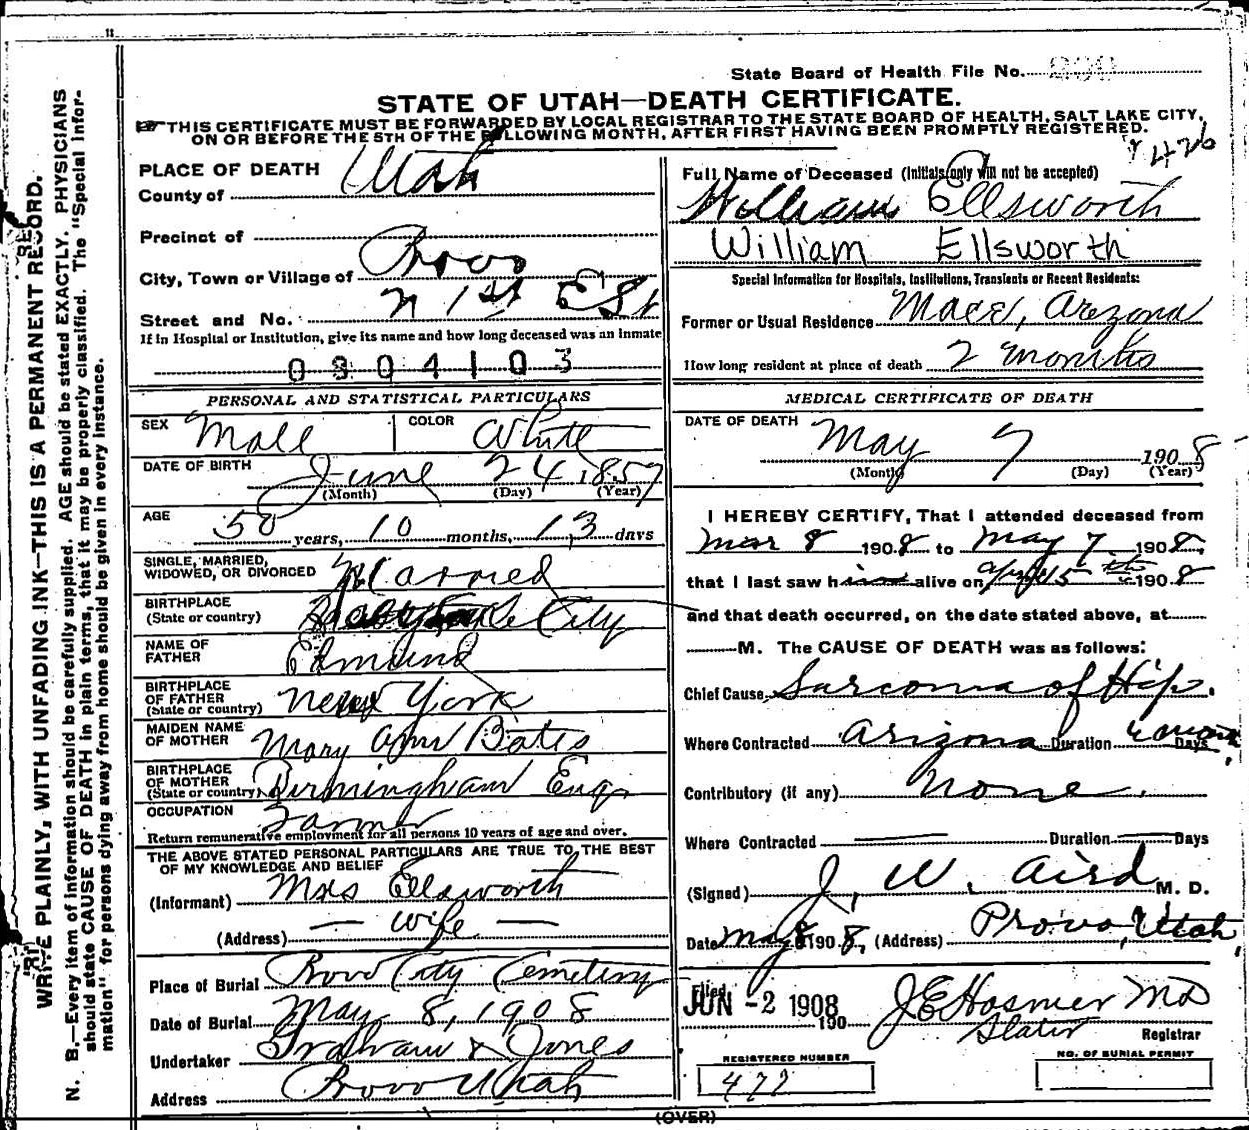 State Board of Health File No.
STATE OF UTAH—DEATH CERTIFICATE.
THIS CERTIFICATE MUST BE FORWARDED BY LOCAL REGISTRAR TO THE STATE BOARD OF HEALTH, SALT LAKE CITY,
ON OR BEFORE THE 5TH OF THE FOLLOWING MONTH, AFTER FIRST HAVING BEEN PROMPTLY REGISTERED.
426
WRITE PLAINLY, WITH UNFADING INK—THIS IS A PERMANENT RECORD.
N. B.—Every item of information should be carefully supplied. AGE should be stated EXACTLY. PHYSICIANS
should state CAUSE OF DEATH in plain terms, that it may be properly classified. The "Special Infor-
mation" for persons dying away from home should be given in every instance.
PLACE OF DEATH
County of Utah
Precinct of
City, Town or Village of Provo
Street and No. N 1st E St
If in Hospital or Institution, give its name and how long deceased was an inmate
0804103
PERSONAL AND STATISTICAL PARTICULARS
SEX Male COLOR White
DATE OF BIRTH June 24 1857
(Month) (Day) (Year)
AGE 50 years, 10 months, 13 days
SINGLE, MARRIED,
WIDOWED, OR DIVORCED Married
BIRTHPLACE
(State or country) City
NAME OF
FATHER Edmund
BIRTHPLACE
OF FATHER
(State or country) New York
MAIDEN NAME
OF MOTHER Mary Ann Bates
BIRTHPLACE
OF MOTHER
(State or country) Birmingham Eng.
OCCUPATION Farmer
Return remunerative employment for all persons 10 years of age and over.
THE ABOVE STATED PERSONAL PARTICULARS ARE TRUE TO THE BEST
OF MY KNOWLEDGE AND BELIEF
(Informant) Mrs Ellsworth
(Address) — wife —
Place of Burial Provo City Cemetery
Date of Burial May 8, 1908
Undertaker Graham & Jones
Address Provo Utah
Full Name of Deceased (Initials only will not be accepted)
William Ellsworth
William Ellsworth
Special Information for Hospitals, Institutions, Transients or Recent Residents:
Former or Usual Residence Mace, Arezona
How long resident at place of death 2 months
MEDICAL CERTIFICATE OF DEATH
DATE OF DEATH May 7 1908
(Month) (Day) (Year)
I HEREBY CERTIFY, That I attended deceased from
Mar 8 1908 to May 7 1908,
that I last saw him alive on April 15th 1908
and that death occurred, on the date stated above, at
M. The CAUSE OF DEATH was as follows:
Chief Cause Sarcoma of Hip.
Where Contracted Arizona Duration Days
Contributory (if any) None.
Where Contracted Duration Days
(Signed) J. W. Aird M. D.
Date May 8 1908, (Address) Provo, Utah,
Filed
JUN -2 1908
190
J E Hosmer MD
Registrar
REGISTERED NUMBER
472
NO. OF BURIAL PERMIT
(OVER)